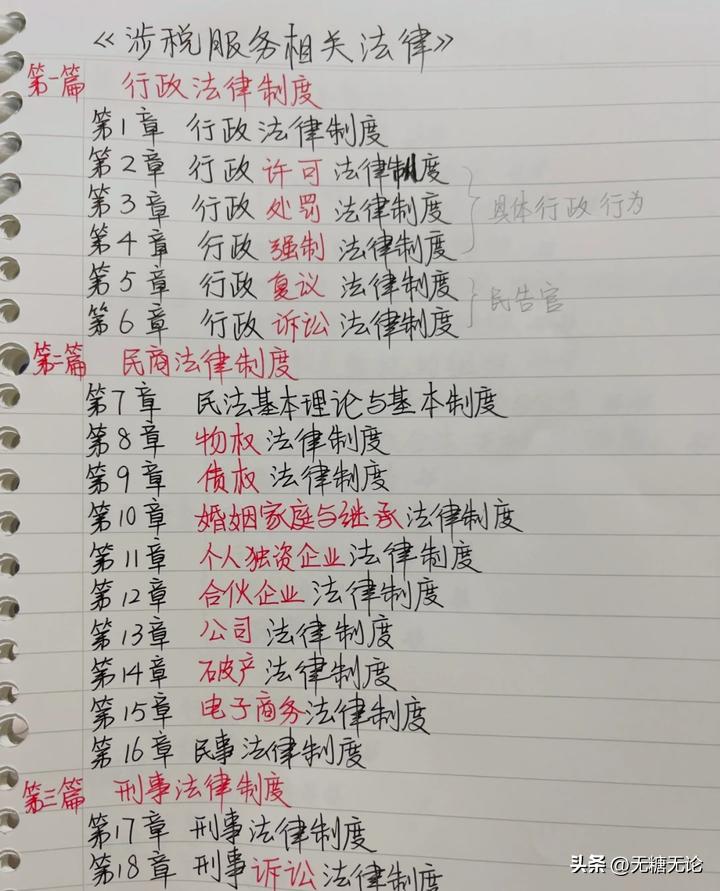 《涉税服务相关法律》
第一篇 行政法律制度
第1章 行政法律制度
第2章 行政许可法律制度
第3章 行政处罚法律制度
第4章 行政强制法律制度
具体行政行为
第5章 行政复议法律制度
第6章 行政诉讼法律制度
民告官
第二篇 民商法律制度
第7章 民法基本理论与基本制度
第8章 物权法律制度
第9章 债权法律制度
第10章 婚姻家庭与继承法律制度
第11章 个人独资企业法律制度
第12章 合伙企业法律制度
第13章 公司法律制度
第14章 破产法律制度
第15章 电子商务法律制度
第16章 民事法律制度
第三篇 刑事法律制度
第17章 刑事法律制度
第18章 刑事诉讼法律制度
头条 @无糖无论